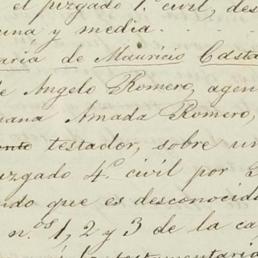 el juzgado 1.° civil, des
una y media.
aria de Mauricio Casta
e Angelo Romero, agen
uana Amada Romero,
ento testador, sobre un
uzgado 4.° civil por
ado que es desconocid
n.os 1, 2 y 3 de la ca
la testamentaria